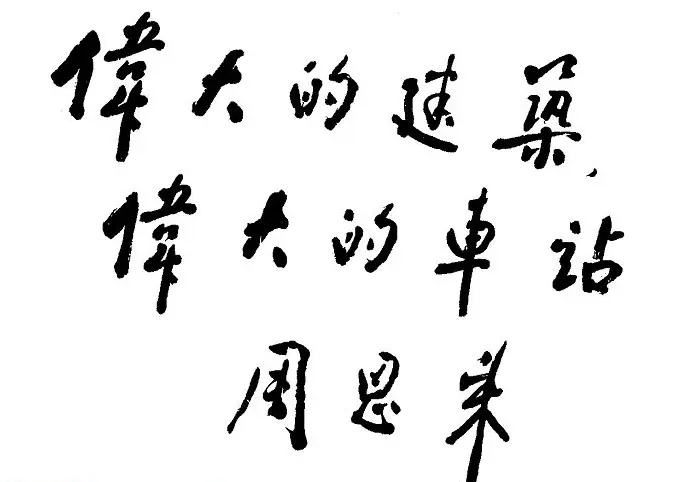 偉大的建築，
偉大的車站
周恩来